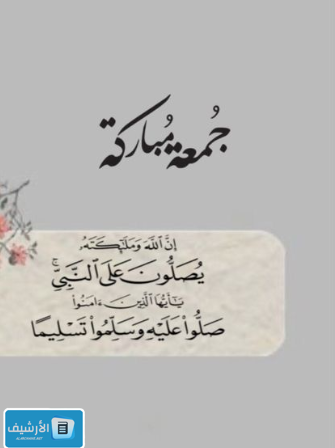 جُمعة مُباركة
إِنَّ ٱللَّهَ وَمَلَٰٓئِكَتَهُۥ
يُصَلُّونَ عَلَى ٱلنَّبِيِّۚ
يَٰٓأَيُّهَا ٱلَّذِينَ ءَامَنُوا۟
صَلُّوا۟ عَلَيْهِ وَسَلِّمُوا۟ تَسْلِيمًا
الأرشيف